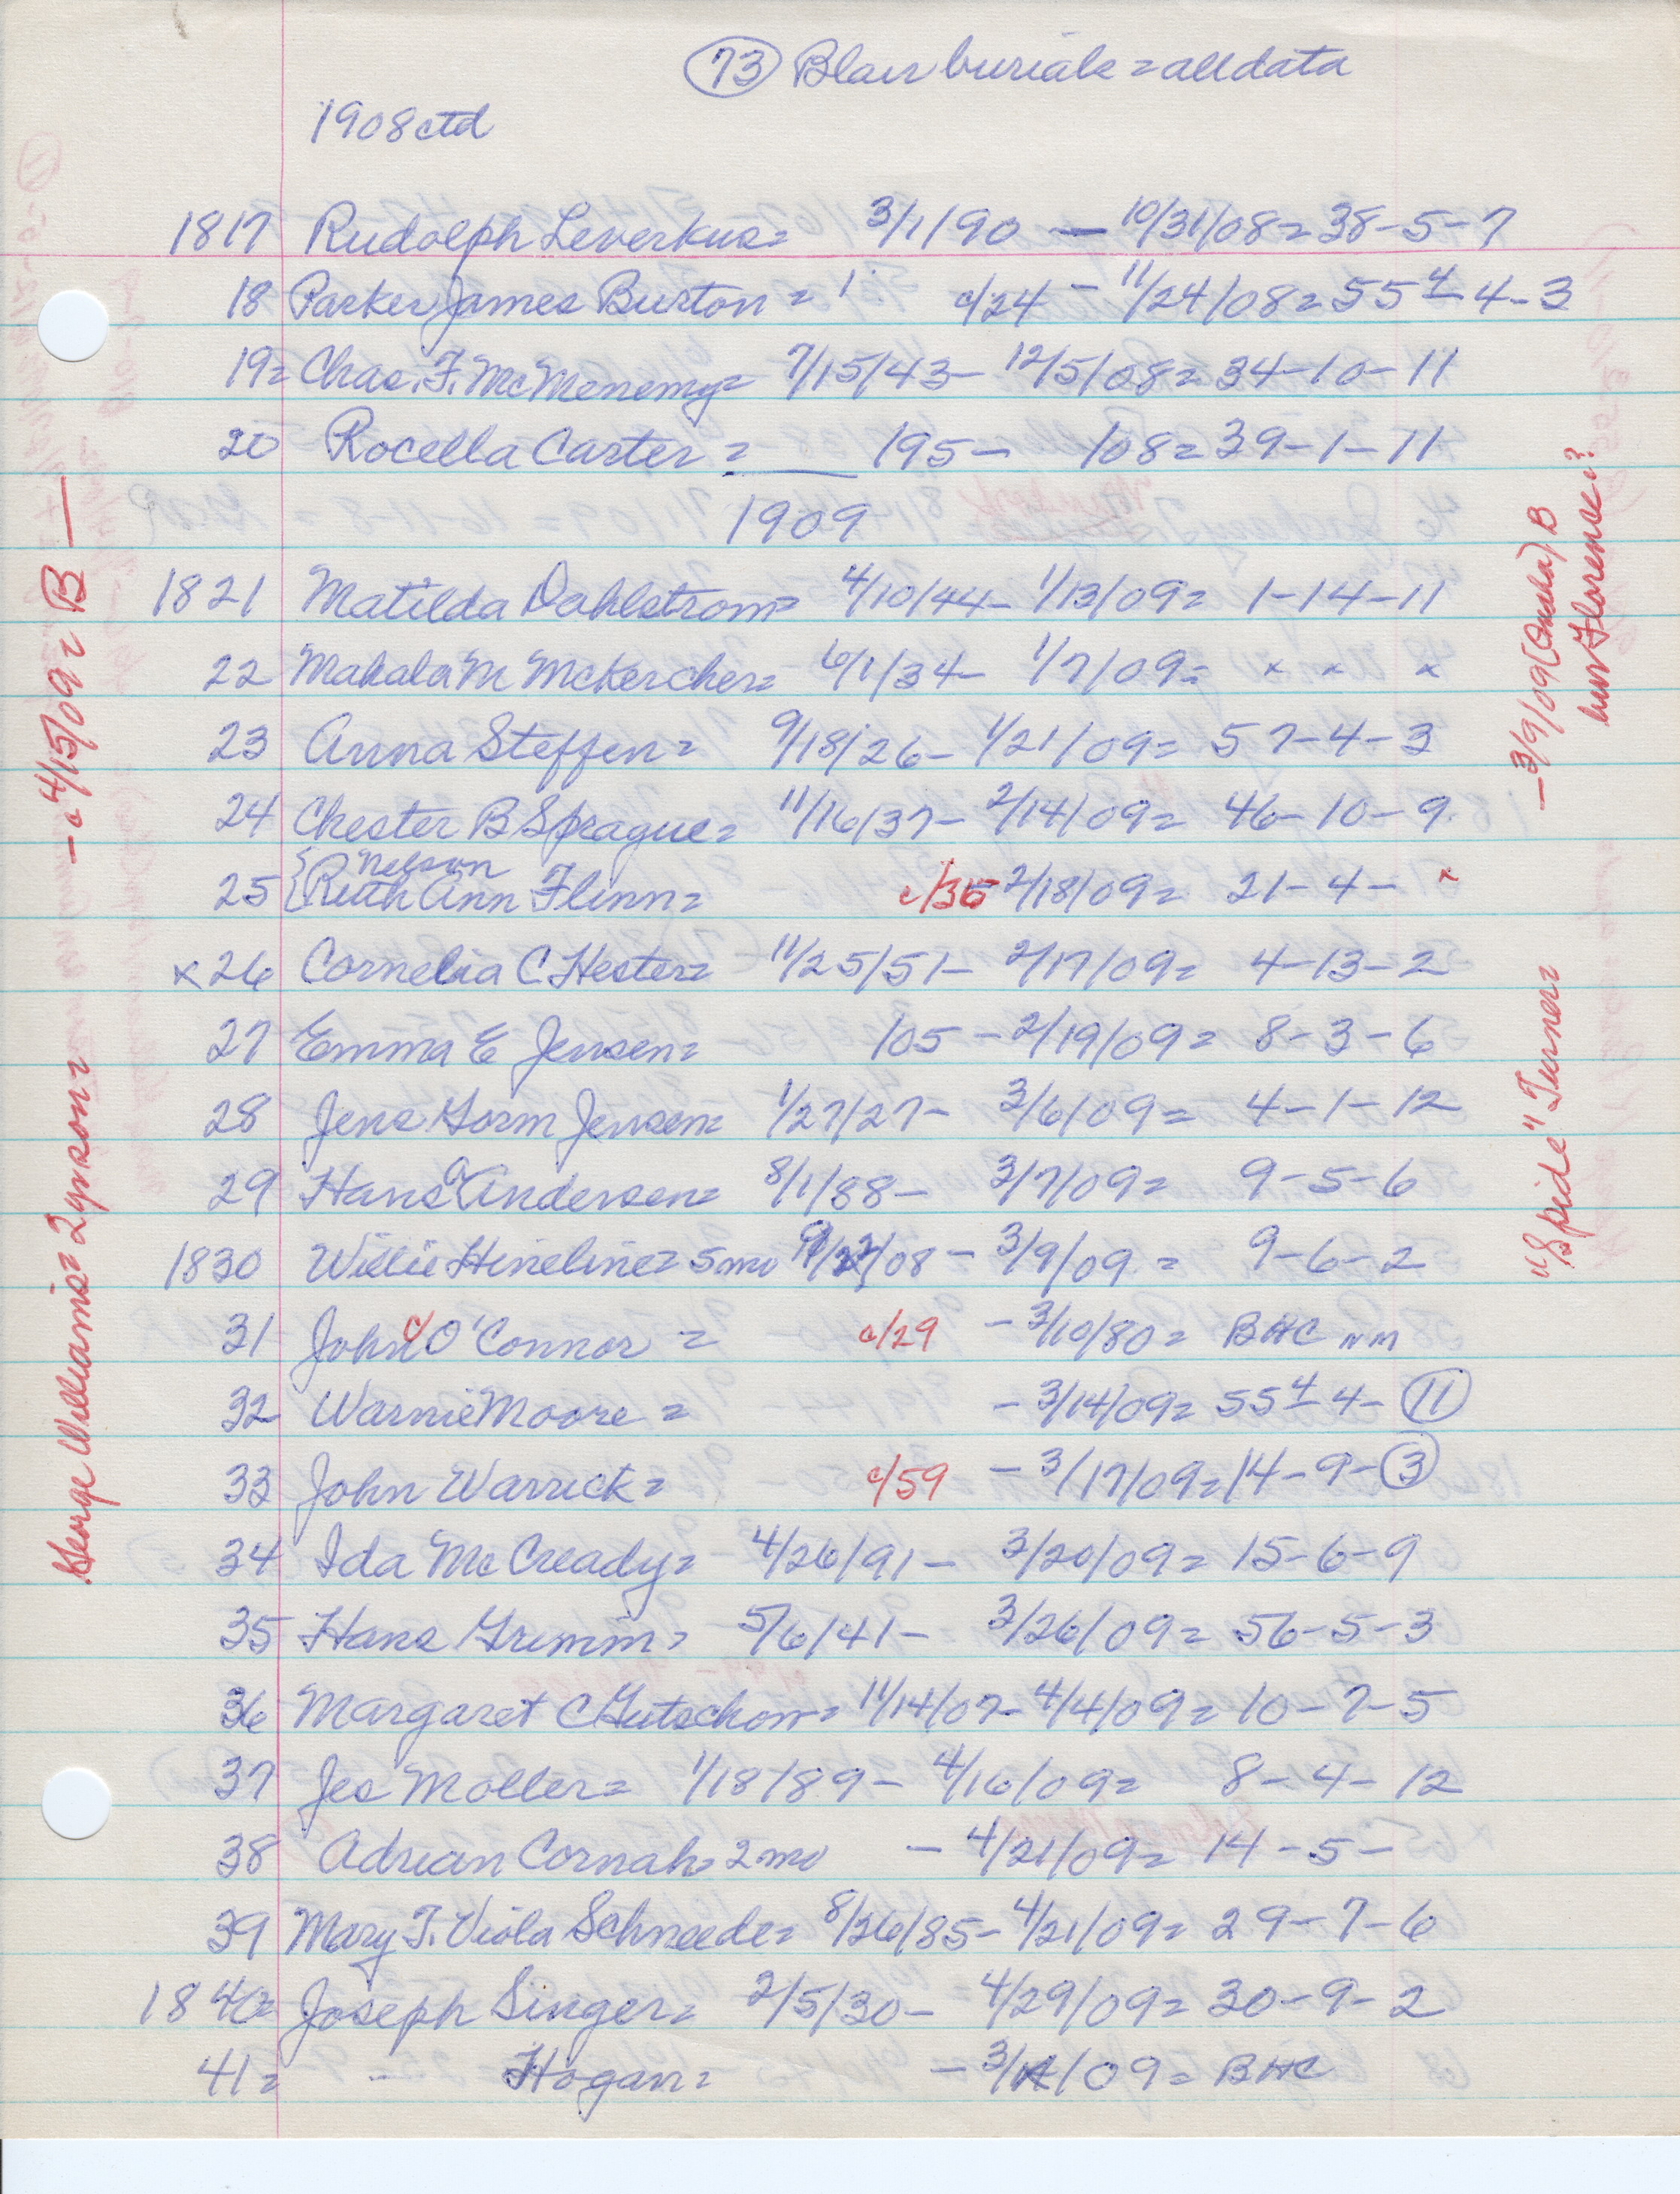 73 Blair burials = all data
1908 ctd
1817 Rudolph Leverkus = 3/1/90 — 10/31/08 = 38-5-7
18 Parker James Burton = 1 c/24 - 11/24/08 = 55 4 - 4-3
19 = Chas. F. McMenemy = 7/15/43 - 12/5/08 = 34-10-11
20 Rocella Carter = __ /95 - /08 = 39-1-11
1909
1821 Matilda Dahlstrom = 4/10/44 - 1/13/09 = 1-14-11
22 Mahala M McKercher = 6/1/34 - 1/7/09 = x x x
23 Anna Steffen = 9/18/26 - 1/21/09 = 57-4-3
24 Chester B Sprague = 11/16/37 - 2/14/09 = 46-10-9
Nelson
25 { Ruth Ann Flinn = c/35 2/18/09 = 21-4- x
x 26 Cornelia C Hester = 11/25/51 - 2/17/09 = 4-13-2
27 Emma E Jensen = /05 - 2/19/09 = 8-3-6
28 Jens Gorm Jensen = 1/27/27 - 3/6/09 = 4-1-12
29 Hans a Andersen = 8/1/88 - 3/7/09 = 9-5-6
1830 Willie Hineline = 5 mo 9/22/08 - 3/9/09 = 9-6-2
31 John C O'Connor = c/29 - 3/10/80 = BHC nm
32 Warnie Moore = - 3/14/09 = 55 4 - 4 - 11
33 John Warrick = c/59 - 3/17/09 = 14-9-3
34 Ida McCready = 4/26/91 - 3/20/09 = 15-6-9
35 Hans Grimm = 5/6/41 - 3/26/09 = 56-5-3
36 Margaret C Gutschow = 11/14/07 - 4/4/09 = 10-7-5
37 Jes Moller = 1/18/89 - 4/16/09 = 8-4-12
38 Adrian Cornah = 2 mo - 4/21/09 = 14-5-
39 Mary F. Viola Schneede = 8/26/85 - 4/21/09 = 29-7-6
1840 = Joseph Singer = 2/5/30 - 4/29/09 = 30-9-2
41 = - Hogan = - 3/ /09 = BHC
George Williams = 2 yrs on = - c 4/15/09 = B —
"Spide" Turner = - 3/9/09 (Omaha) B
bur Florence?